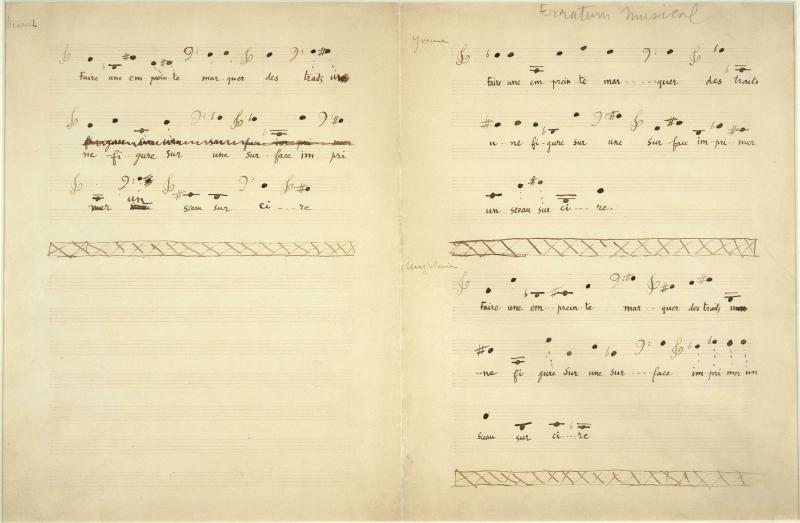 Erratum Musical
Faire une em prein te mar quer des traits
ne fi - gure sur une sur - face im pri
un sceau sur ci --- re
Yvonne
Faire une em prein te mar ---- quer des traits
u - ne fi - gure sur une sur - face im - pri - mer
un sceau sur ci --- re.
Magdeleine
Faire une em -- prein te mar --- quer des traits
-- ne fi gure sur une sur ---- face im pri mer un
sceau sur ci --- re